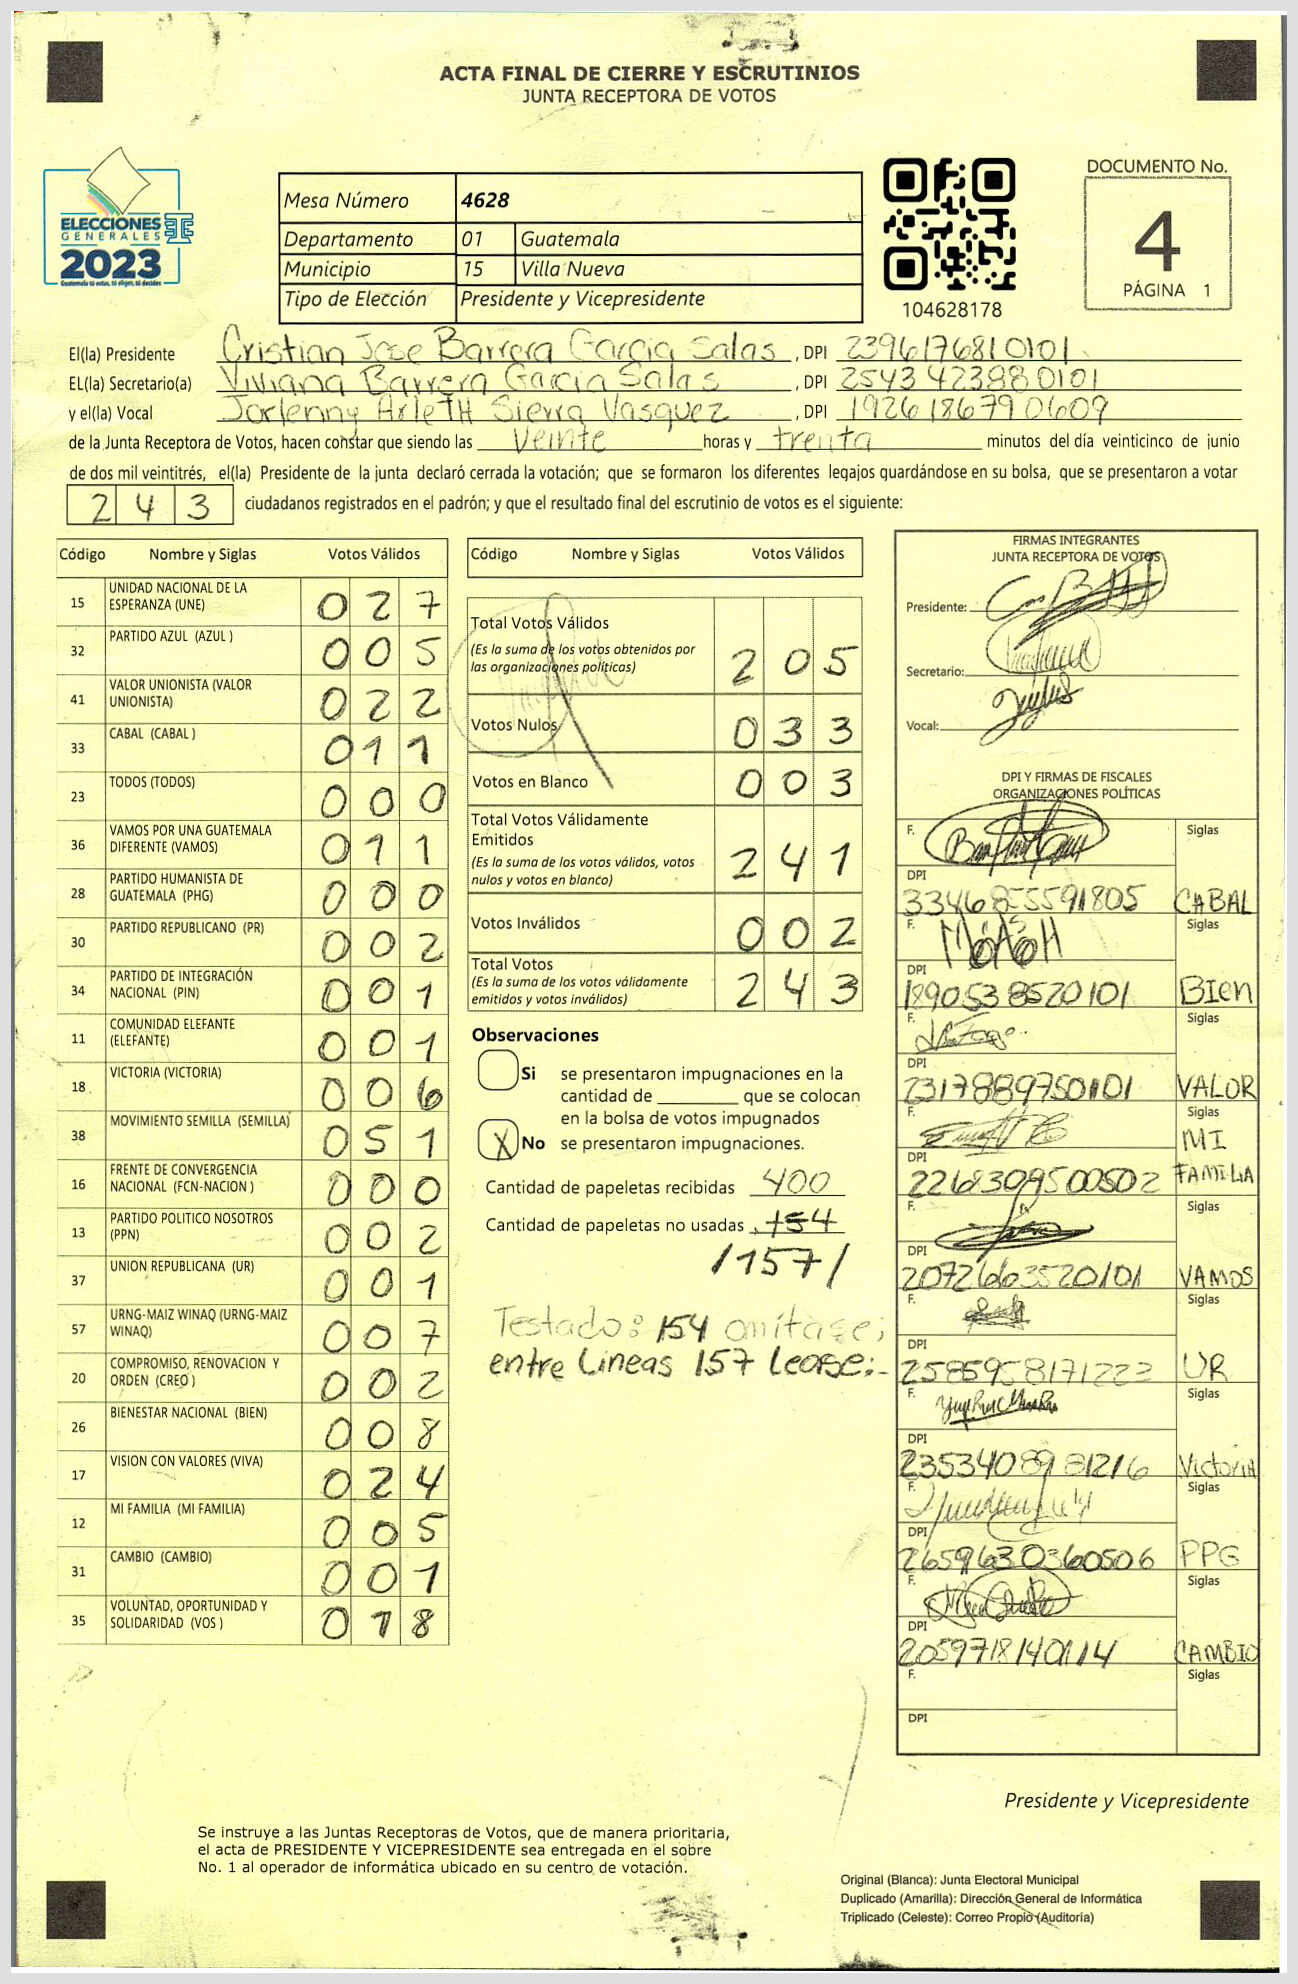 ACTA FINAL DE CIERRE Y ESCRUTINIOS
JUNTA RECEPTORA DE VOTOS
ELECCIONES
GENERALES
2023
Guatemala tú votas, tú eliges, tú decides
Mesa Número 4628
Departamento 01 Guatemala
Municipio 15 Villa Nueva
Tipo de Elección Presidente y Vicepresidente
104628178
DOCUMENTO No.
4
PÁGINA 1
El(la) Presidente Cristian Jose Barrera Garcia Salas, DPI 2396176810101
EL(la) Secretario(a) Viviana Barrera Garcia Salas, DPI 2543423880101
y el(la) Vocal Jorlenny ArleTH Sierra Vasquez, DPI 1926186790609
de la Junta Receptora de Votos, hacen constar que siendo las veinte horas y trenta minutos del día veinticinco de junio
de dos mil veintitrés, el(la) Presidente de la junta declaró cerrada la votación; que se formaron los diferentes legajos quardándose en su bolsa, que se presentaron a votar
243 ciudadanos registrados en el padrón; y que el resultado final del escrutinio de votos es el siguiente:
Código Nombre y Siglas Votos Válidos
15 UNIDAD NACIONAL DE LA ESPERANZA (UNE) 027
32 PARTIDO AZUL (AZUL ) 005
41 VALOR UNIONISTA (VALOR UNIONISTA) 022
33 CABAL (CABAL ) 011
23 TODOS (TODOS) 000
36 VAMOS POR UNA GUATEMALA DIFERENTE (VAMOS) 011
28 PARTIDO HUMANISTA DE GUATEMALA (PHG) 000
30 PARTIDO REPUBLICANO (PR) 002
34 PARTIDO DE INTEGRACIÓN NACIONAL (PIN) 001
11 COMUNIDAD ELEFANTE (ELEFANTE) 001
18 VICTORIA (VICTORIA) 006
38 MOVIMIENTO SEMILLA (SEMILLA) 051
16 FRENTE DE CONVERGENCIA NACIONAL (FCN-NACION ) 000
13 PARTIDO POLITICO NOSOTROS (PPN) 002
37 UNION REPUBLICANA (UR) 001
57 URNG-MAIZ WINAQ (URNG-MAIZ WINAQ) 007
20 COMPROMISO, RENOVACION Y ORDEN (CREO ) 002
26 BIENESTAR NACIONAL (BIEN) 008
17 VISION CON VALORES (VIVA) 024
12 MI FAMILIA (MI FAMILIA) 005
31 CAMBIO (CAMBIO) 001
35 VOLUNTAD, OPORTUNIDAD Y SOLIDARIDAD (VOS ) 018
Código Nombre y Siglas Votos Válidos
Total Votos Válidos
(Es la suma de los votos obtenidos por
las organizaciones políticas) 205
Votos Nulos 033
Votos en Blanco 003
Total Votos Válidamente
Emitidos
(Es la suma de los votos válidos, votos
nulos y votos en blanco) 241
Votos Inválidos 002
Total Votos
(Es la suma de los votos válidamente
emitidos y votos inválidos) 243
Observaciones
Si se presentaron impugnaciones en la
cantidad de ________ que se colocan
en la bolsa de votos impugnados
X No se presentaron impugnaciones.
Cantidad de papeletas recibidas 400
Cantidad de papeletas no usadas 154
/157/
Testado: 154 omitase;
entre Líneas 157 Lease;-
FIRMAS INTEGRANTES
JUNTA RECEPTORA DE VOTOS
Presidente:
Secretario:
Vocal:
DPI Y FIRMAS DE FISCALES
ORGANIZACIONES POLÍTICAS
F. Siglas
DPI
3346855591805 CABAL
F. Siglas
DPI
1890538520101 BIen
F. Siglas
DPI
2317889750101 VALOR
F. Siglas
DPI
2268309500502 MI FAMILIA
F. Siglas
DPI
2072663520101 VAMOS
F. Siglas
DPI
2585958171222 UR
F. Siglas
DPI
2353408981216 VictoriA
F. Siglas
DPI
2659630360506 PPG
F. Siglas
DPI
2059718140114 CAMBIO
F. Siglas
DPI
Presidente y Vicepresidente
Se instruye a las Juntas Receptoras de Votos, que de manera prioritaria,
el acta de PRESIDENTE Y VICEPRESIDENTE sea entregada en el sobre
No. 1 al operador de informática ubicado en su centro de votación.
Original (Blanca): Junta Electoral Municipal
Duplicado (Amarilla): Dirección General de Informática
Triplicado (Celeste): Correo Propio (Auditoría)